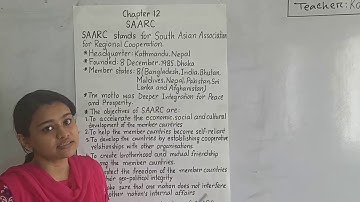 Teacher: Ka
Chapter 12
SAARC
SAARC stands for South Asian Association
for Regional Cooperation.
* Headquarter: Kathmandu, Nepal
* Founded: 8 December, 1985, Dhaka
* Member states: 8 (Bangladesh, India, Bhutan,
Maldives, Nepal, Pakistan, Sri
Lanka and Afghanistan)
* The motto was Deeper Integration for Peace
and Prosperity.
* The objectives of SAARC are:
1. To accelerate the economic, social and cultural
development of the member countries
2. To help the member countries become self-reliant
3. To develop the countries by establishing cooperative
relationships with other organisations.
To create brotherhood and mutual friendship
among the member countries.
protect the freedom of the member countries
their geo-political integrity
make sure that one nation does not interfere
other nation's internal affairs